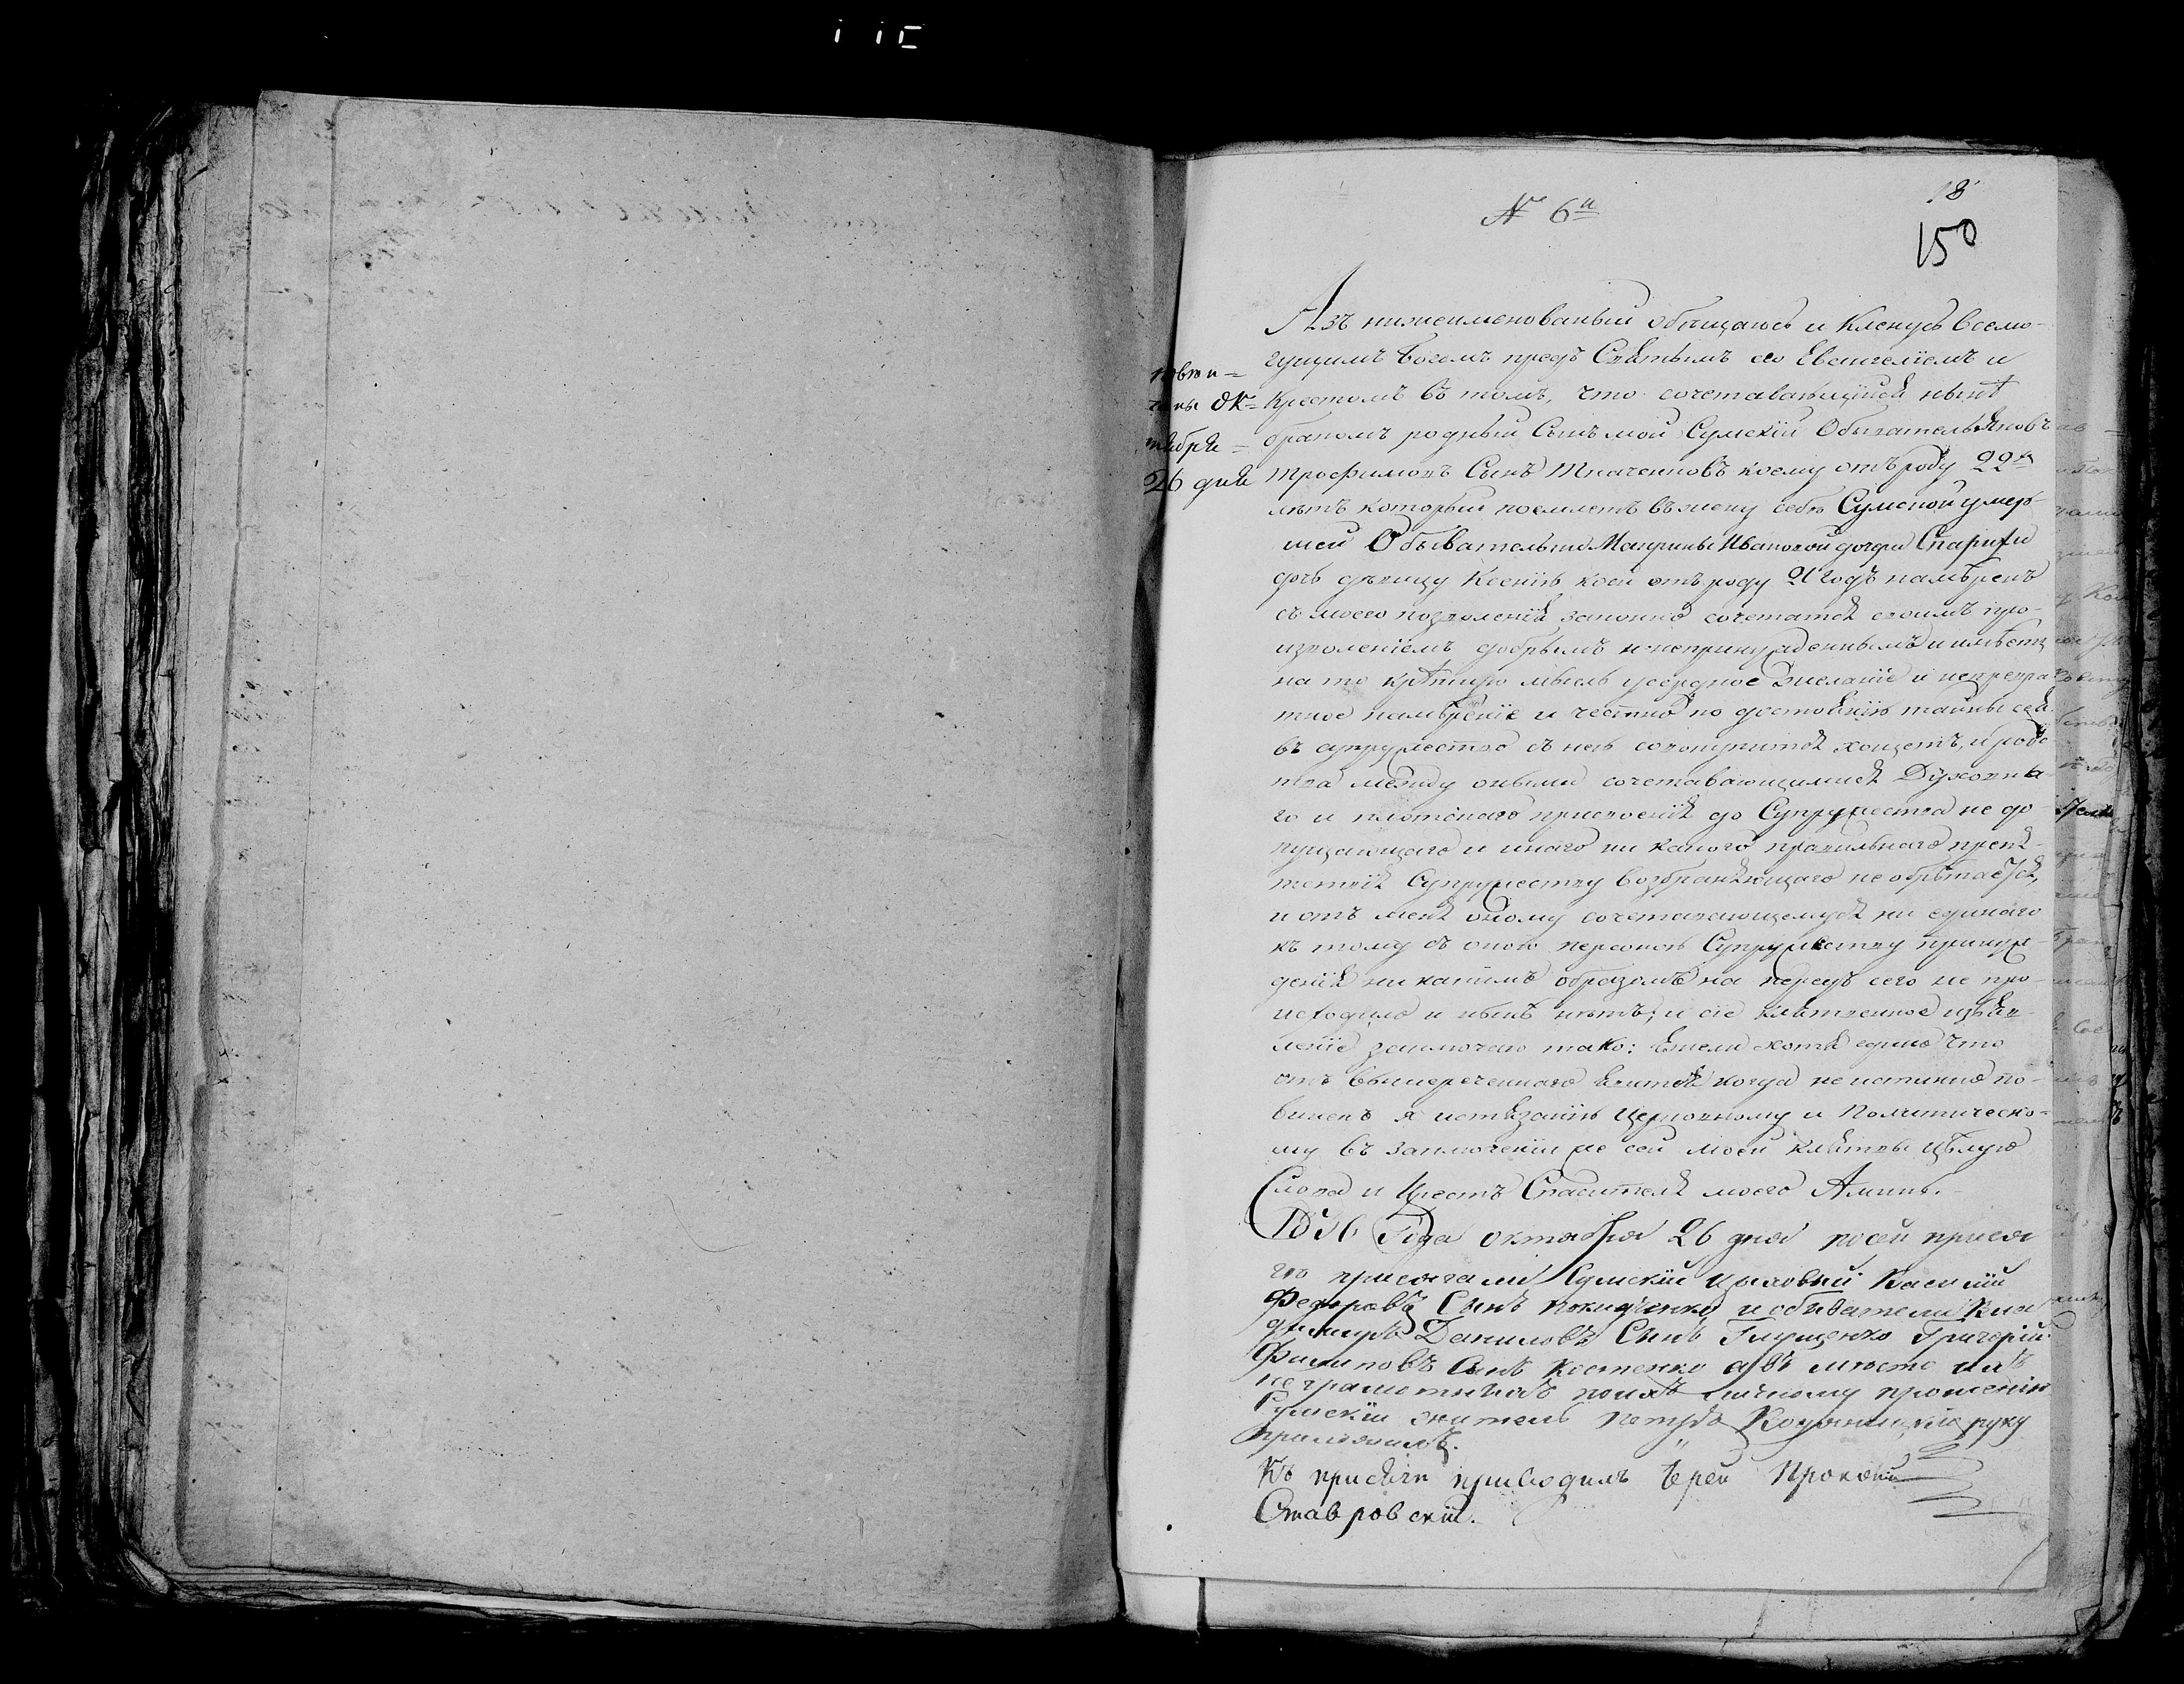 18
№ 6й
150
Азъ нижеименованый обещаюсь и кленусь всемо-
гущимъ Богомъ предъ Святымъ его Евангелiемъ и
Крестомъ въ томъ, что сочетавающiися нынѣ
бракомъ родный Сынъ мой Сумскiй Обыватель Яковъ
Трофимовъ Сынъ Ткаченковъ коему отъ роду 22
лѣтъ который поемлетъ въ жену себѣ Сумской умер-
шей Обывательки Макрины Ивановой дочери
дочь дѣвицу Ксенiю коей отъ роду 21 годъ намѣренъ
съ моего позволенiя законно сочетатся своимъ про-
изволенiемъ добрымъ и непринужденнымъ и имѣетъ
на то крѣпкую мысль усердное желанiе и непревра-
тное намѣренiе и честно по достоянiю тайны сея
въ супружество съ нею совокупится хощетъ, и родс
тва между оными сочетавающимися Духовна-
го и плотскаго присвоенiя до Супружества не до
пущающаго и инаго ни какого правильнаго препя-
тствiя Супружеству возбраняющаго не обрѣтается,
и отъ меня оному сочетавающемуся ни единаго
къ тому съ оною персоною Супружеству принуж-
денiя ни какимъ образомъ на передъ сего не про-
исходило и нынѣ нѣтъ; и сiе клятвенное изъяв-
ленiе заключаю тако: Ежели хотя едино что
отъ вышереченнаго явится когда не истинно по-
виненъ я истязанiю Церковному и Политическо-
му въ заключенiи же сей моей клятвы цѣлую
Слова и Крестъ Спасителя моего Аминь.
1816 Года октября 26 дня посей прися
ге присягали Сумскiй цеховый Василiй
Федоровъ Сынъ и обыватели Вла
димиръ Даниловъ Сынъ Глущенко Григорiй
Филиповъ Сынъ Костенко а вместо ихъ
неграмотныхъ поихъ личному прошенiю
Сумскiй житель Петръ руку
приложилъ.
Къ присяги приводилъ Iерей Прокофiй
Ставровскiй.
повен-
чаны Ок=
тября =
26 дня